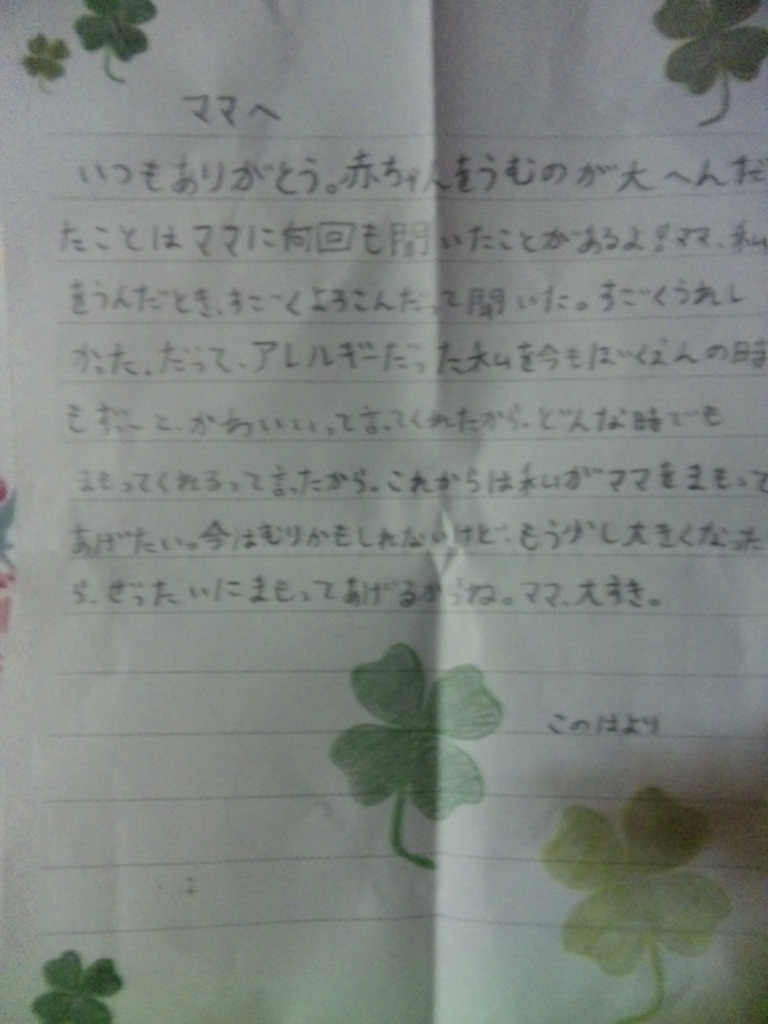 ママへ
いつもありがとう。赤ちゃんをうむのが大へんだ
たことはママに何回も聞いたことがあるよ!ママ、私
をうんだとき、すごくよろこんだって聞いた。すごくうれし
かった。だって、アレルギーだった私を今もほいくえんの時
もずーっと、かわいいって言ってくれたから。どんな時でも
まもってくれるって言ったから。これからは私がママをまもって
あげたい。今はむりかもしれないけど、もう少し大きくなった
ら、ぜったいにまもってあげるからね。ママ、大すき。
このはより